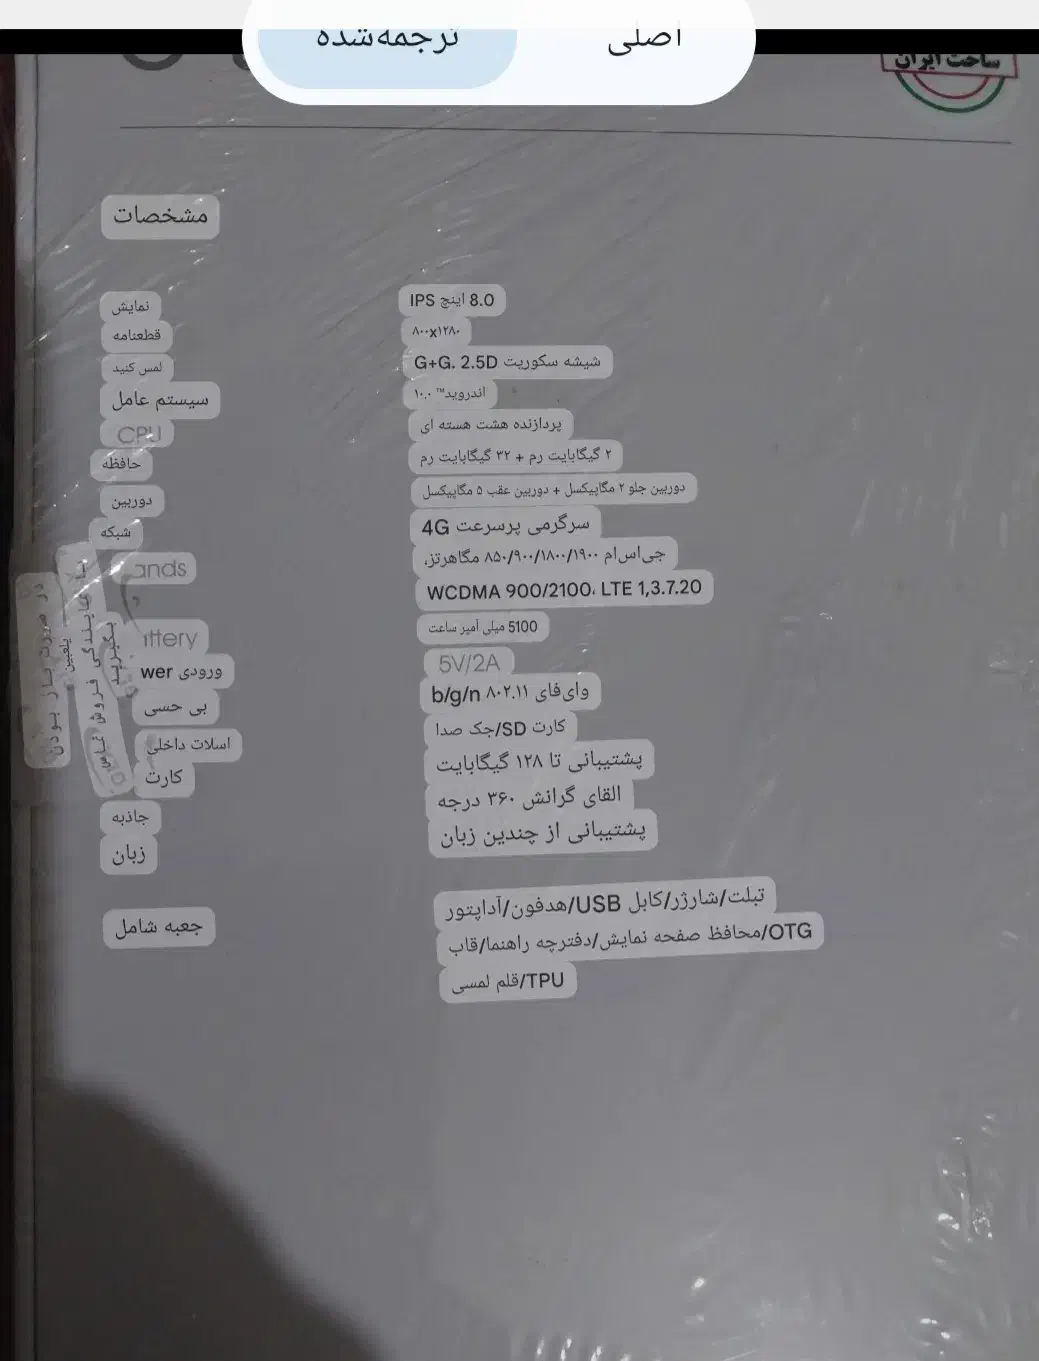 اصلی
ترجمه‌شده
ساخت ایران
مشخصات
نمایش
8.0 اینچ IPS
قطعنامه
۸۰۰x۱۲۸۰
لمس کنید
شیشه سکوریت G+G. 2.5D
سیستم عامل
اندروید™ ۱۰.۰
CPU
پردازنده هشت هسته ای
حافظه
۲ گیگابایت رم + ۳۲ گیگابایت رم
دوربین
دوربین جلو ۲ مگاپیکسل + دوربین عقب ۵ مگاپیکسل
شبکه
سرگرمی پرسرعت 4G
ands
جی‌اس‌ام ۸۵۰/۹۰۰/۱۸۰۰/۱۹۰۰ مگاهرتز،
WCDMA 900/2100، LTE 1,3.7.20
ttery
5100 میلی آمپر ساعت
ورودی wer
5V/2A
بی حسی
وای‌فای ۸۰۲.۱۱ b/g/n
اسلات داخلی
کارت SD/جک صدا
کارت
پشتیبانی تا ۱۲۸ گیگابایت
جاذبه
القای گرانش ۳۶۰ درجه
زبان
پشتیبانی از چندین زبان
جعبه شامل
تبلت/شارژر/کابل USB/هدفون/آداپتور
OTG/محافظ صفحه نمایش/دفترچه راهنما/قاب
TPU/قلم لمسی
در صورت باز بودن
پلمبین
با نمایندگی فروش تماس
بگیرید